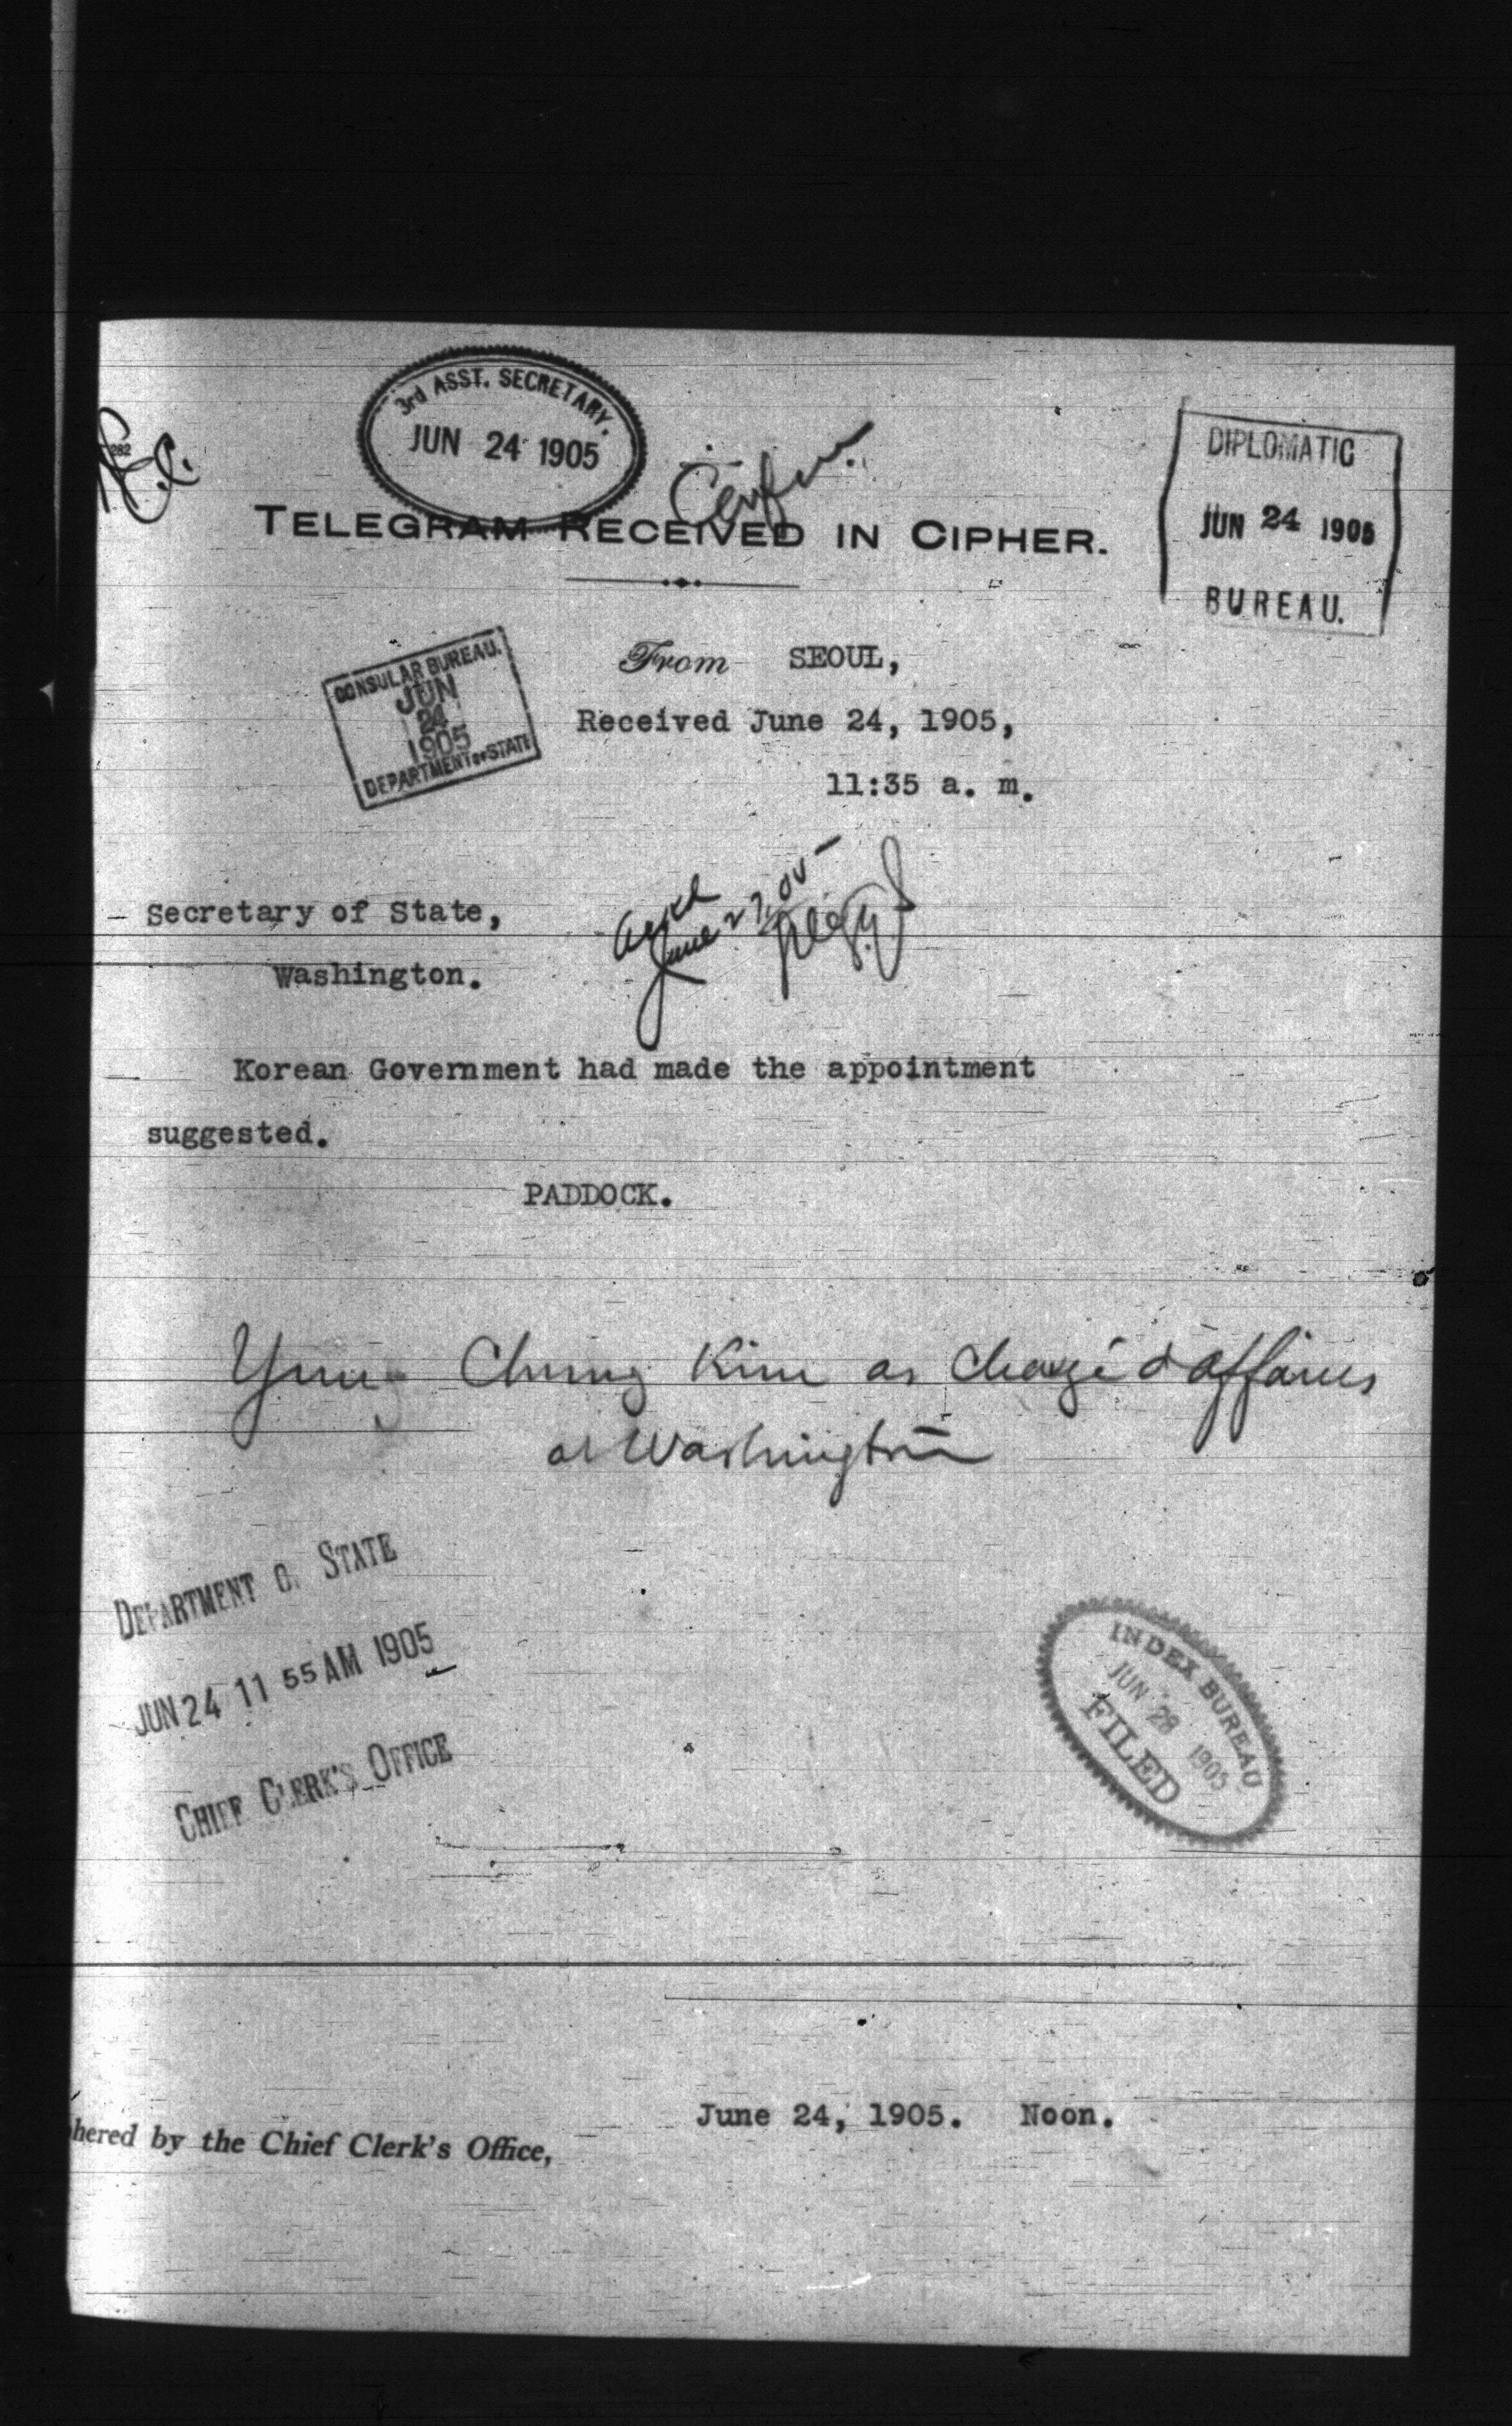 3rd ASST. SECRETARY.
JUN 24 1905
282
DIPLOMATIC
JUN 24 1905
BUREAU.
TELEGRAM RECEIVED IN CIPHER.
From SEOUL,
CONSULAR BUREAU.
JUN
24
1905
DEPARTMENT OF STATE
Received June 24, 1905,
11:35 a. m.
Secretary of State,
Washington.
Ackd
June 27, 05
Korean Government had made the appointment
suggested.
PADDOCK.
Yung Chung Kim as chargé d'affaires
at Washington
DEPARTMENT O. STATE
JUN 24 11 55 AM 1905
CHIEF CLERK'S OFFICE
INDEX BUREAU
JUN 28 1905
FILED
hered by the Chief Clerk's Office,
June 24, 1905. Noon.